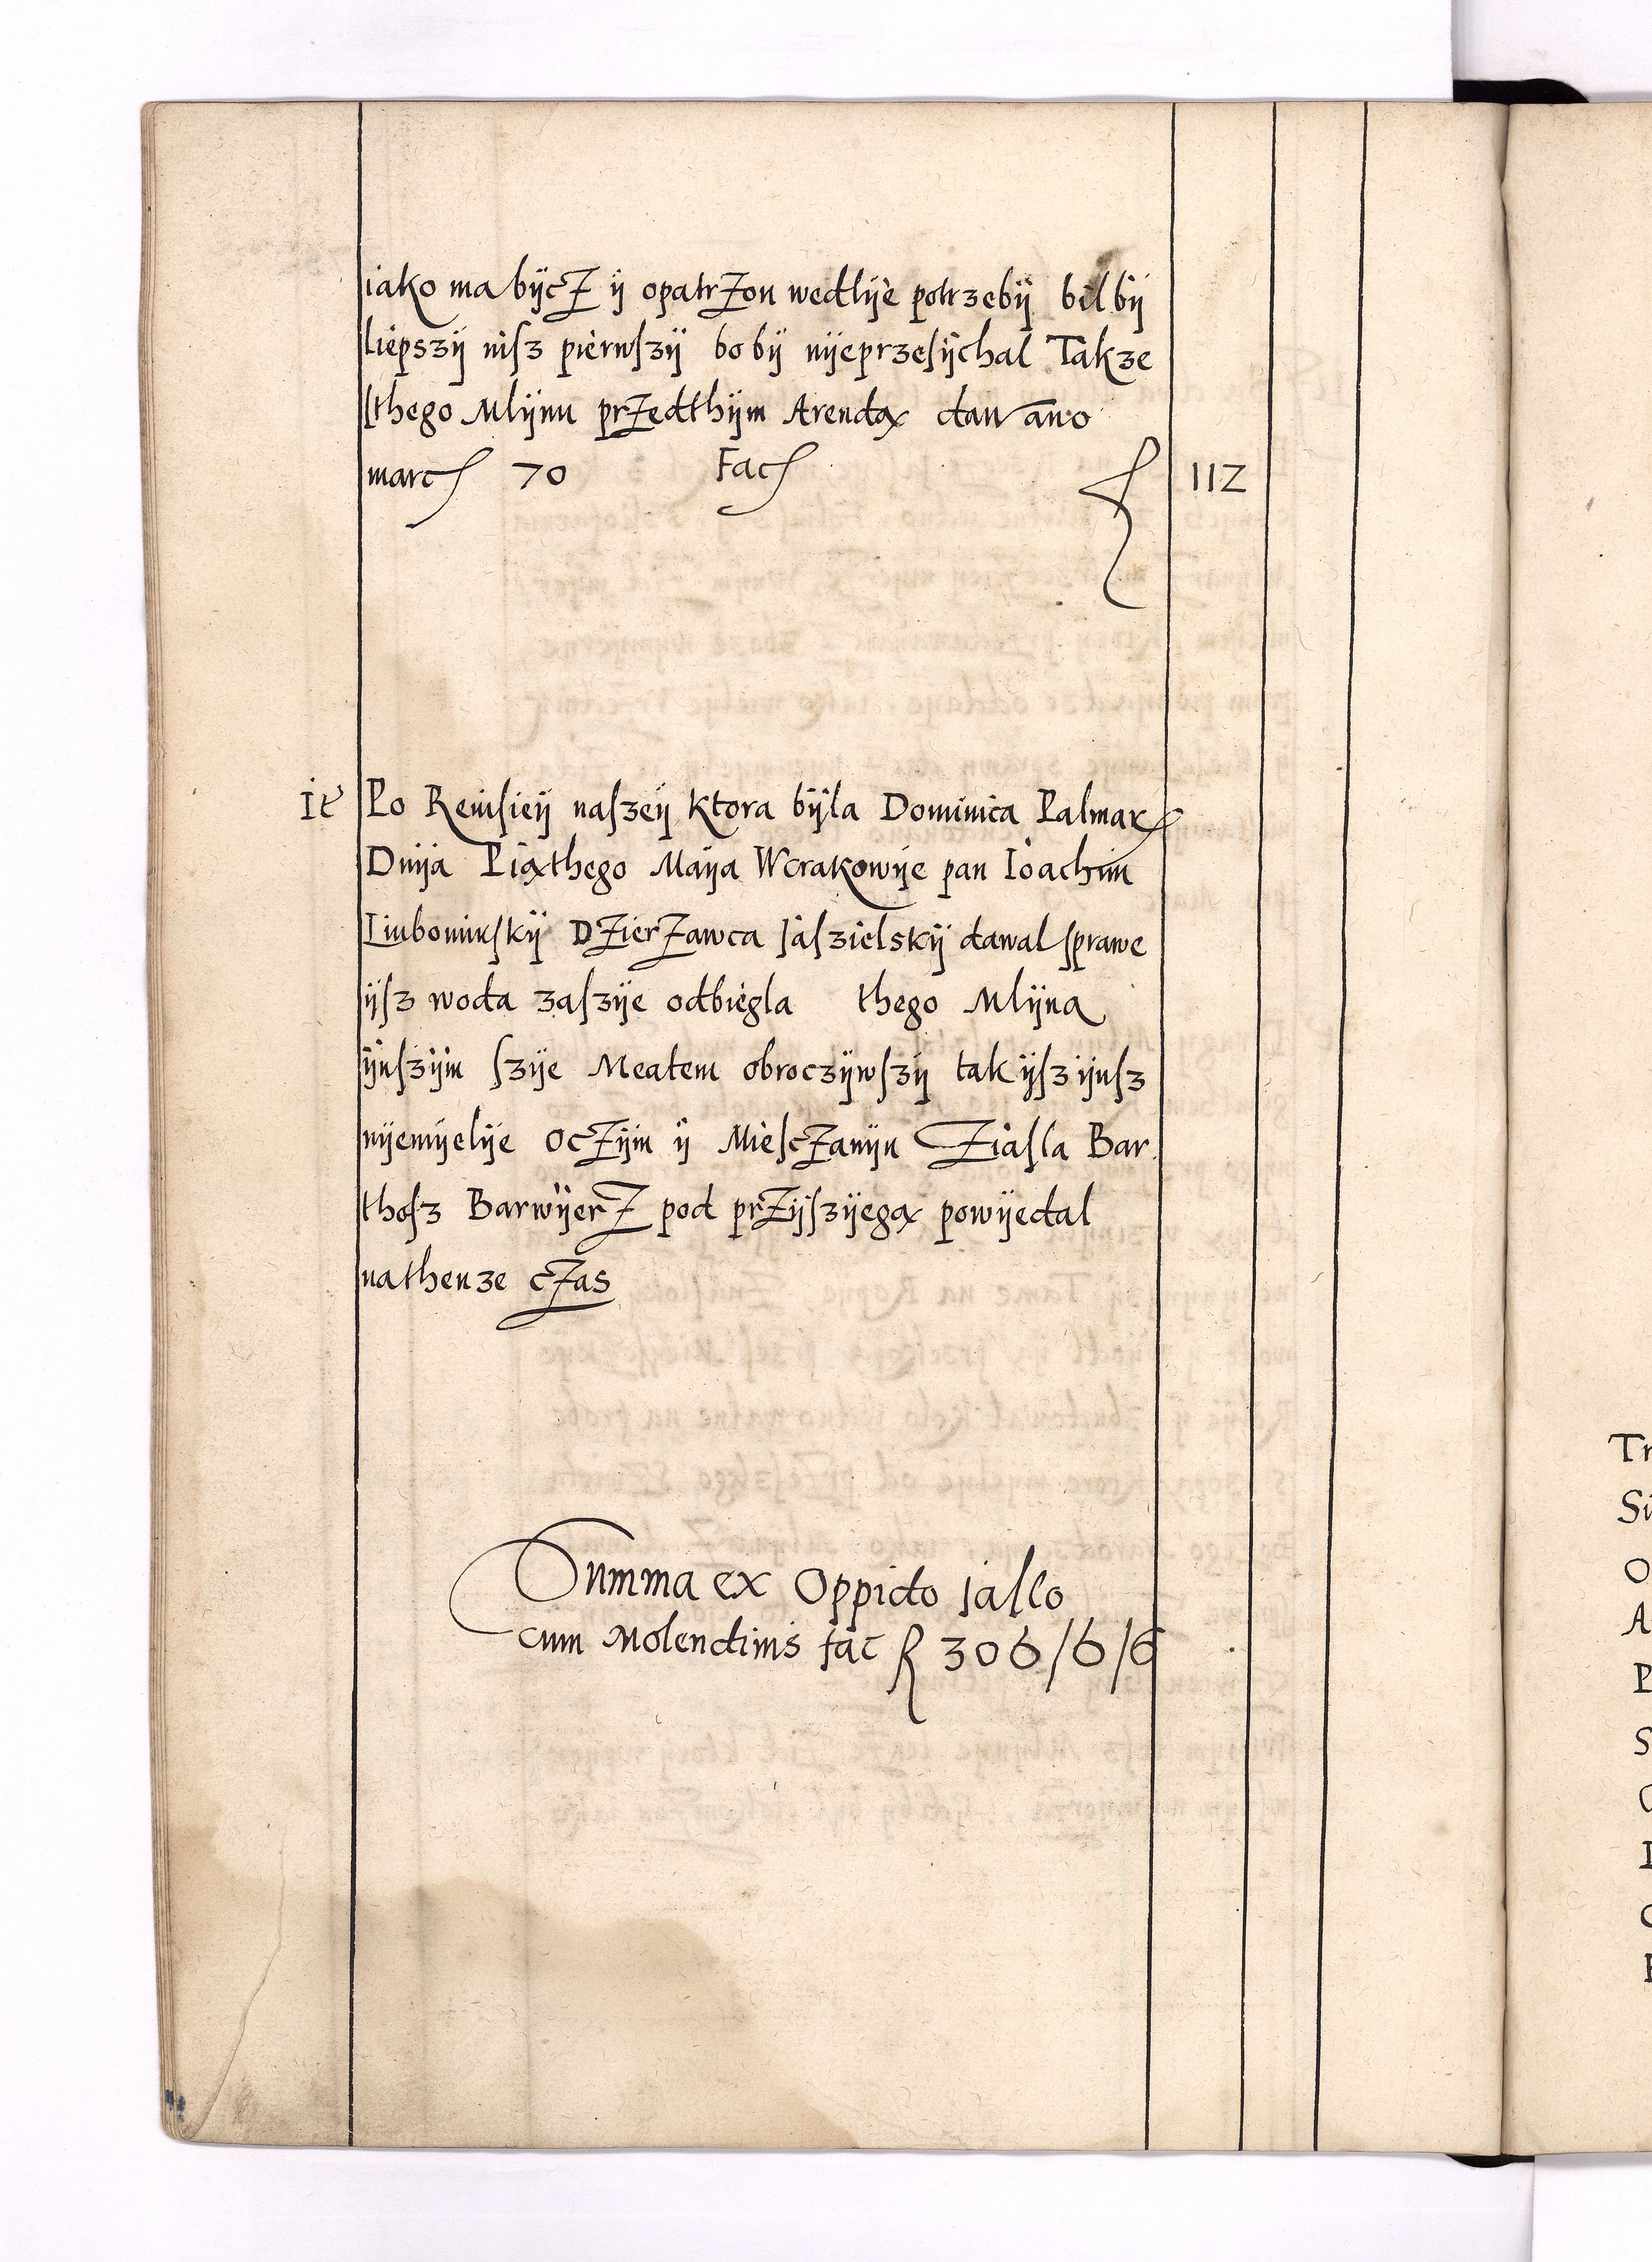 iako ma bÿcz ÿ opatrzon wedlÿe potrzebÿ bilbÿ
liepszÿ nisz pierwszÿ bo bÿ nÿeprzesÿchal Takze
sthego Mlÿnu przedthÿm Arendą dawano
marc 70 Fac f 112
It Po Revisieÿ naszeÿ ktora bÿla Dominica Palmar
Dnÿa Piąthego Maÿa Wcrakowÿe pan Joachim
Liubomirskÿ Dzierzawca Jaszielskÿ dawal sprawe
ÿsz woda zaszÿe odbiegla thego Mlÿna
ÿnszÿm szÿe Meatem obroczÿwszÿ tak ÿsz ÿusz
nÿemÿelÿe oczÿm ÿ Miesczanÿn Ziasla Bar
thosz Barwÿerz pod przÿszÿegą powÿedal
nathenze czas
Summa ex Oppido Jaslo
cum Molendinis fac f 306/6/6
Tr
Si
O
A
P
S